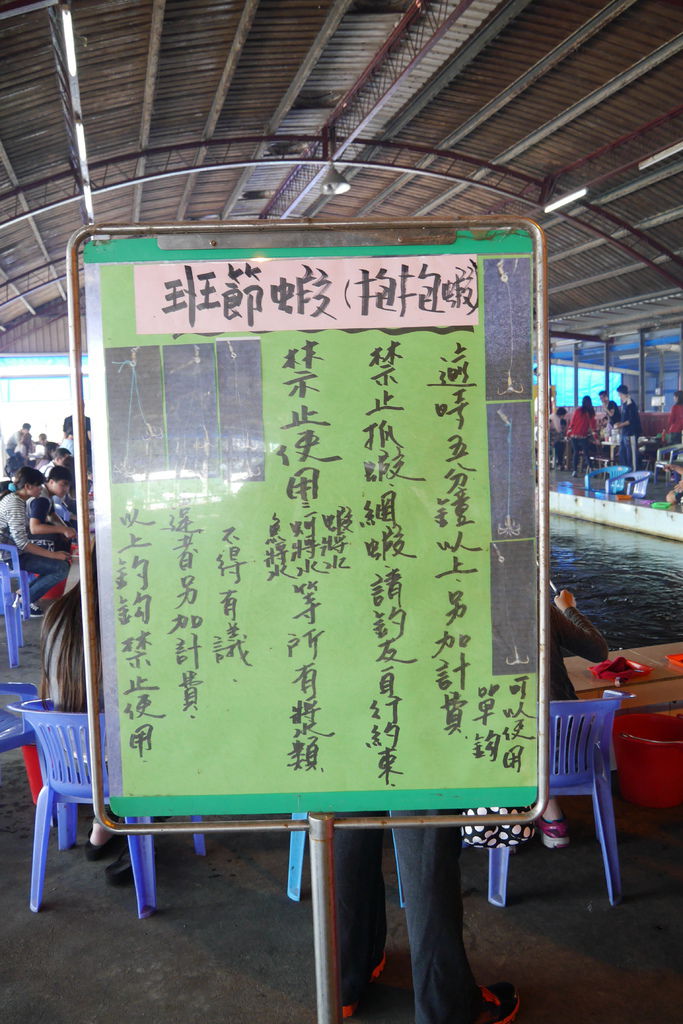 班節蝦(抱抱蝦)
可以使用
單鉤
逾時五分鐘以上.另加計費.
禁止抓蝦網蝦.請釣友自行約束.
禁止使用:蝦漿
蚵漿
魚漿
等所有漿類.
不得有議.
違者另加計費.
以上釣鉤禁止使用.